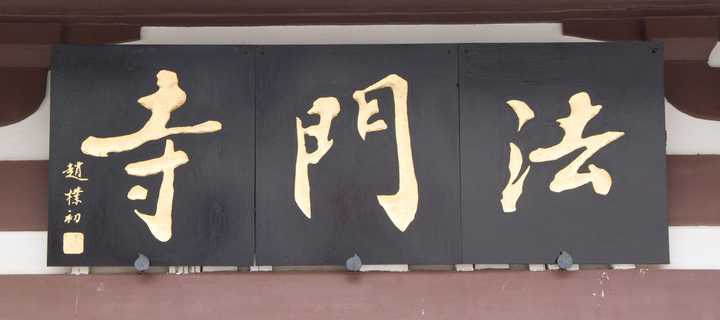 法門寺
趙樸初